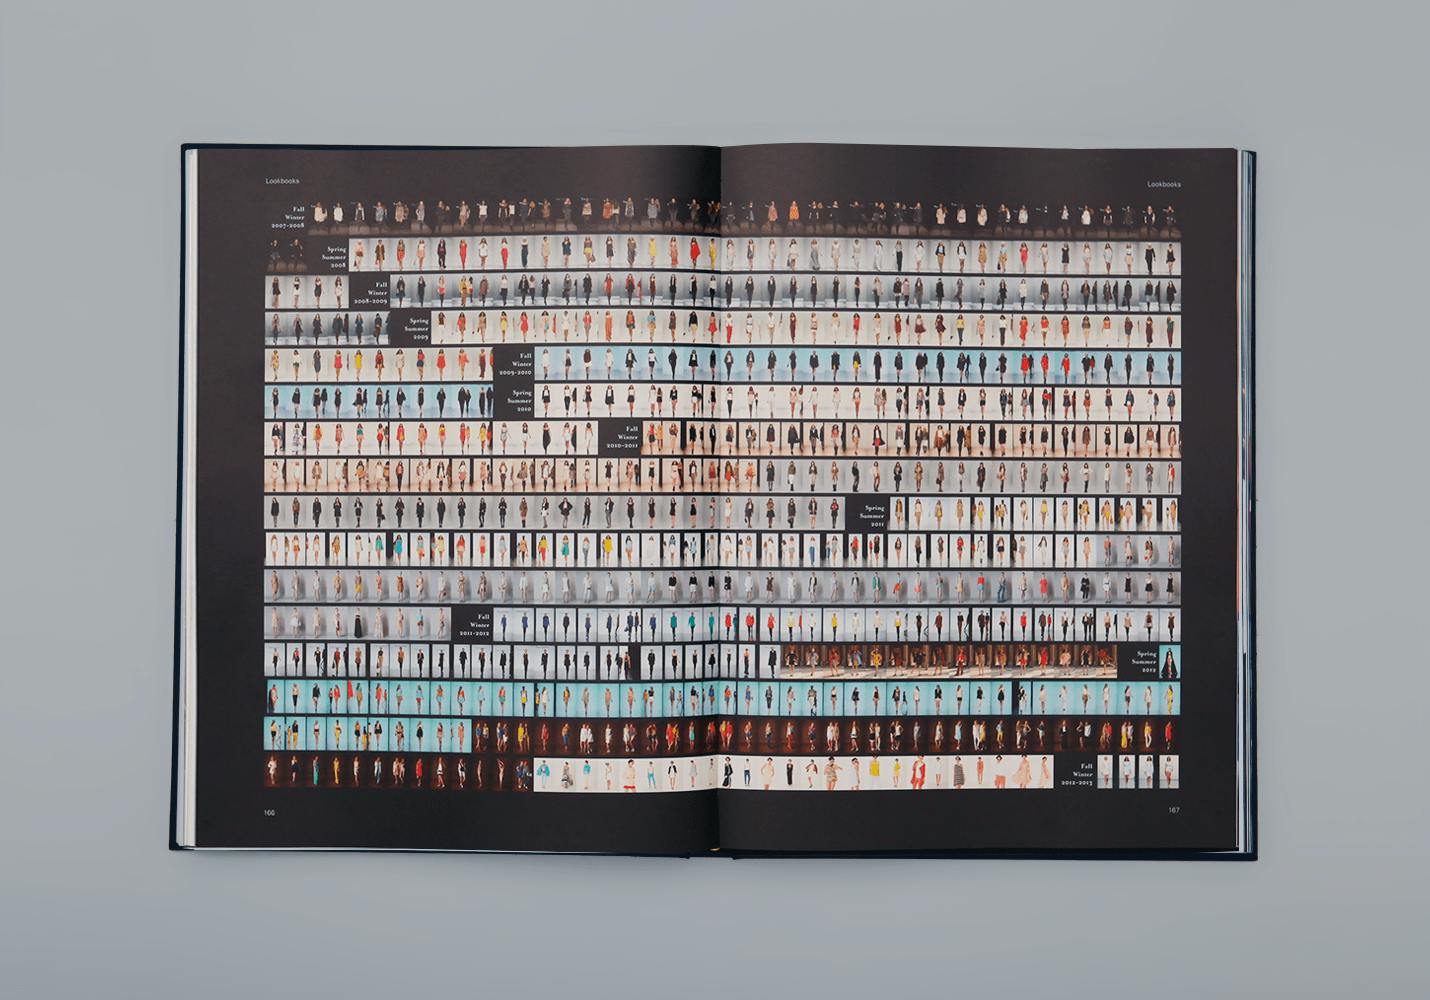 Lookbooks
Lookbooks
Fall
Winter
2007-2008
Spring
Summer
2008
Fall
Winter
2008-2009
Spring
Summer
2009
Fall
Winter
2009-2010
Spring
Summer
2010
Fall
Winter
2010-2011
Spring
Summer
2011
Fall
Winter
2011-2012
Spring
Summer
2012
Fall
Winter
2012-2013
166
167